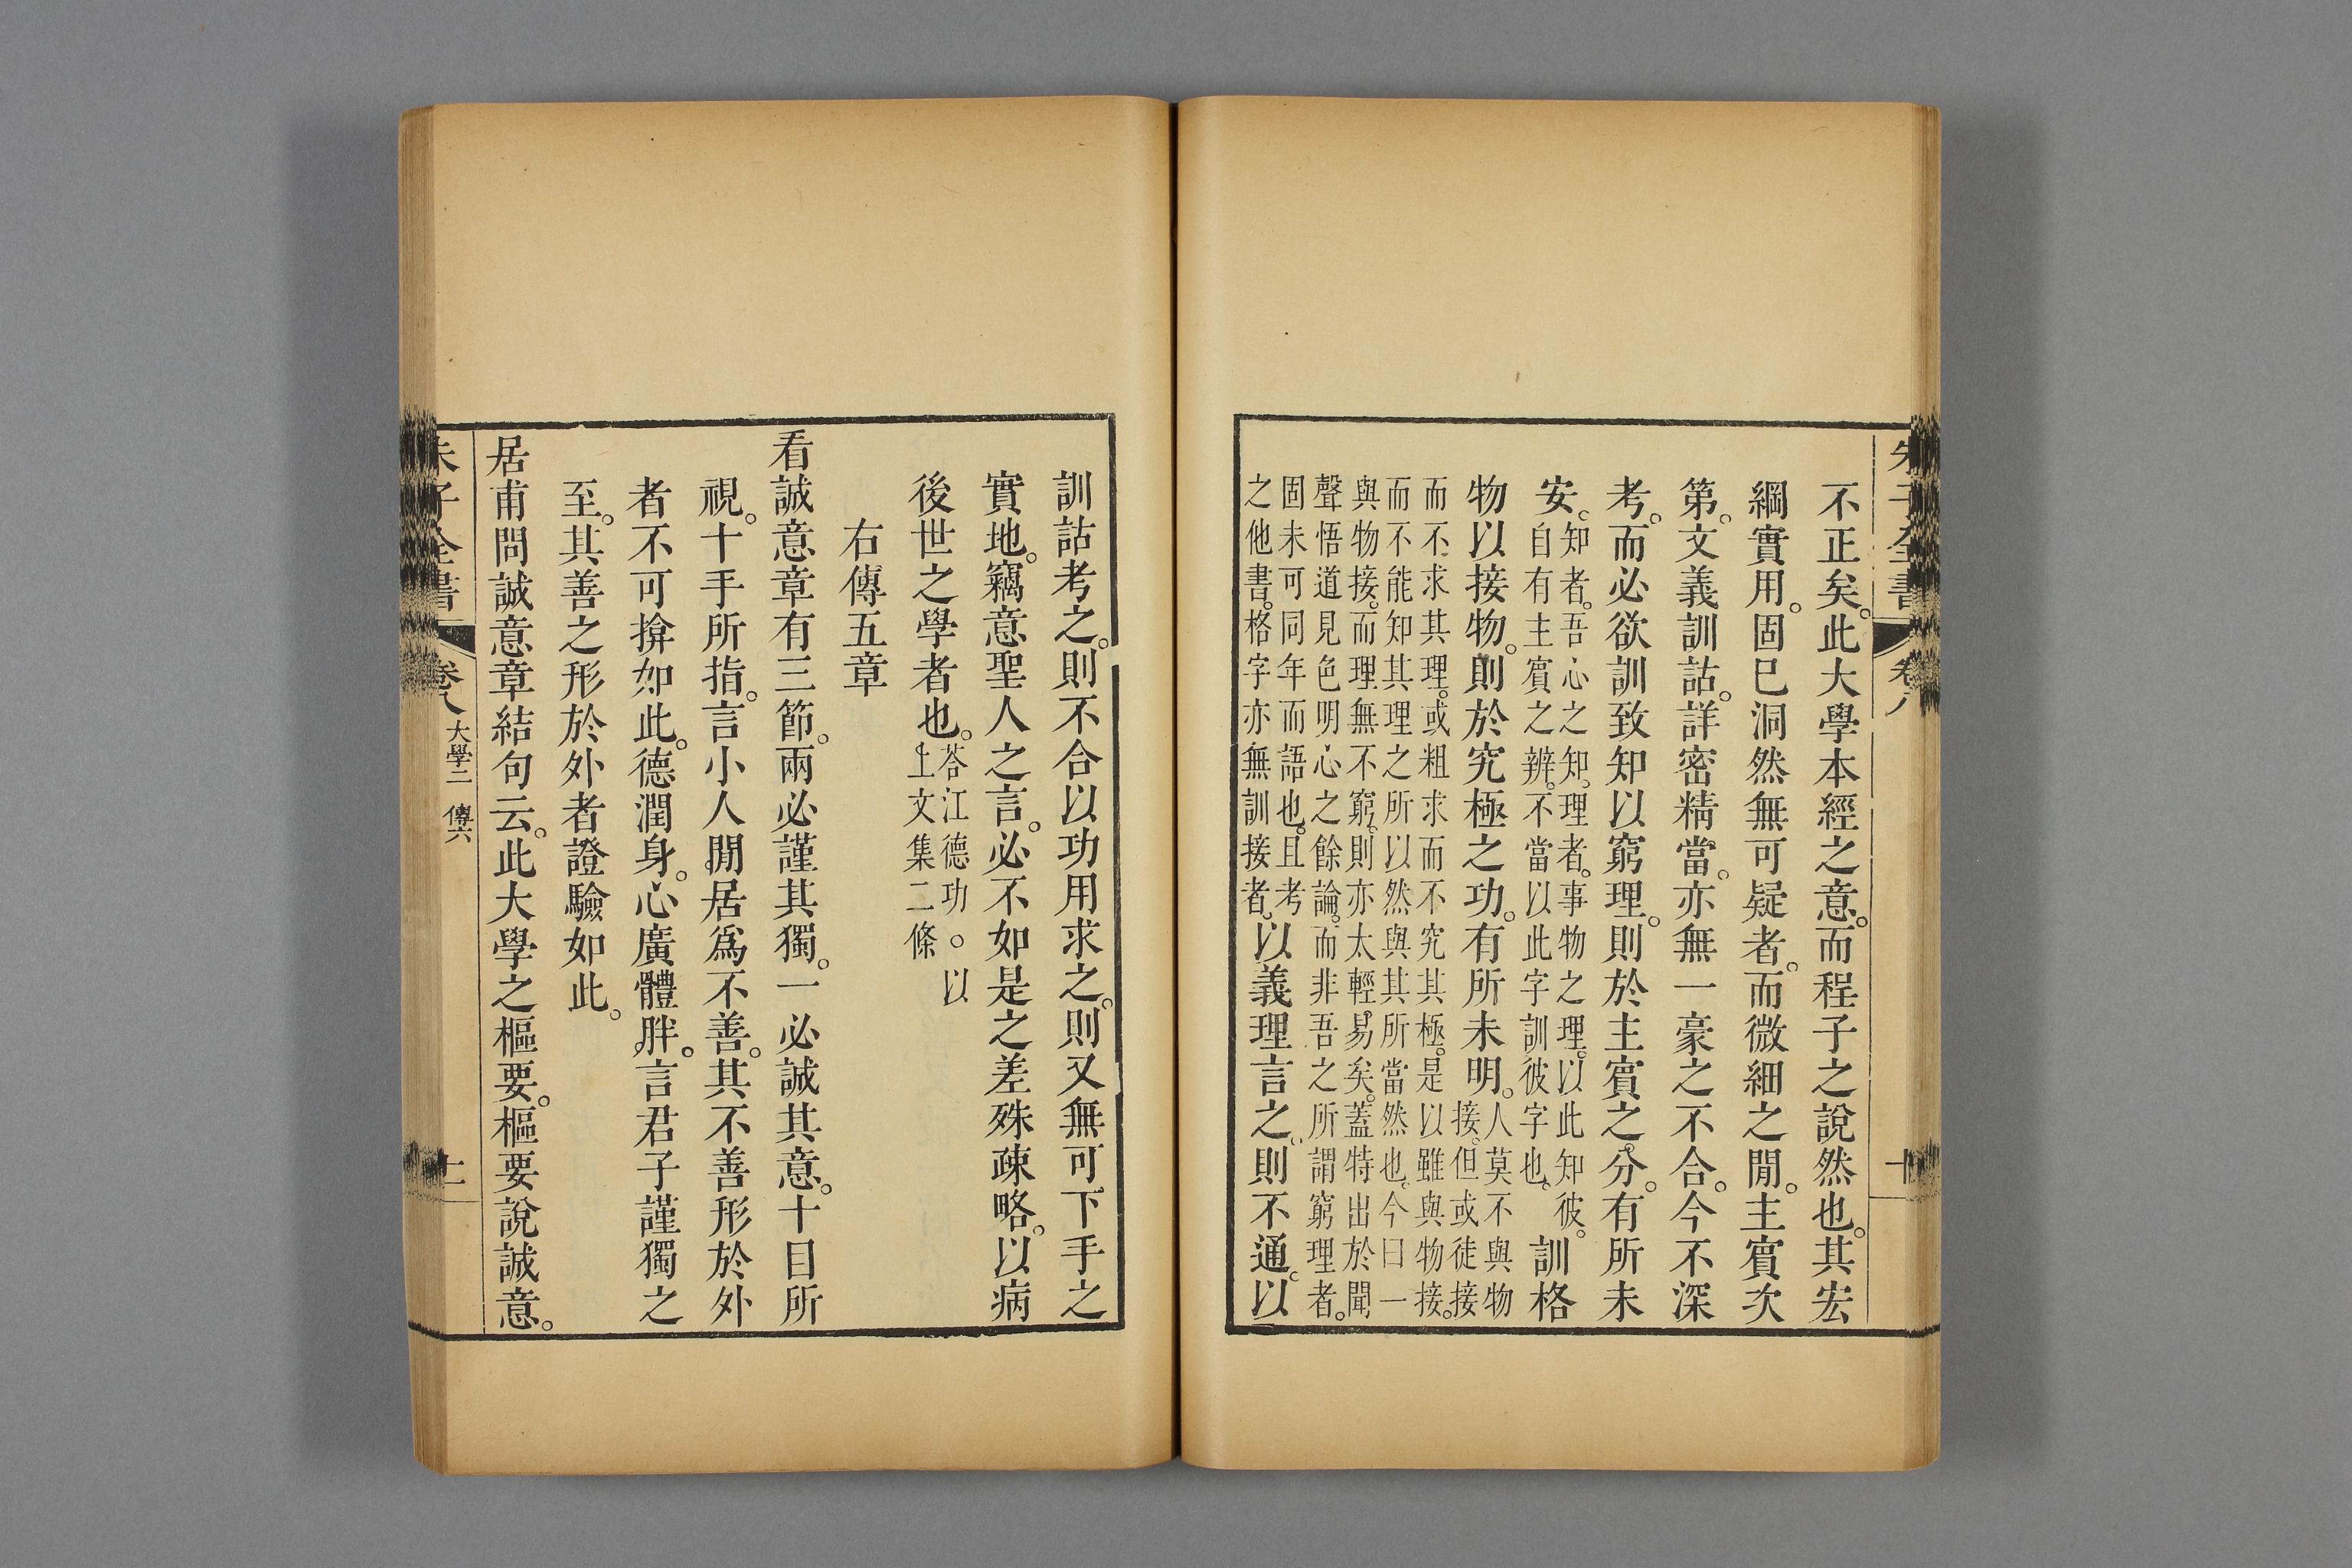 朱子全書 卷八 十
不正矣。此大學本經之意。而程子之說然也。其宏
綱實用。固已洞然無可疑者。而微細之閒。主賓次
第。文義訓詁。詳密精當。亦無一豪之不合。今不深
考。而必欲訓致知以窮理。則於主賓之分。有所未
安。知者。吾心之知。理者。事物之理。以此知彼。自有主賓之辨。不當以此字訓彼字也。訓格
物以接物。則於究極之功。有所未明。人莫不與物接。但或徒接
而不求其理。或粗求而不究其極。是以雖與物接。而不能知其理之所以然與其所當然也。今曰一
與物接。而理無不窮。則亦太輕易矣。蓋特出於聞聲悟道見色明心之餘論。而非吾之所謂窮理者。
固未可同年而語也。且考之他書。格字亦無訓接者。以義理言之。則不通。以
訓詁考之。則不合以功用求之。則又無可下手之
實地。竊意聖人之言。必不如是之差殊疎略。以病
後世之學者也。荅江德功。○以上文集二條
右傳五章
看誠意章有三節。兩必謹其獨。一必誠其意。十目所
視。十手所指。言小人閒居爲不善。其不善形於外
者不可揜如此。德潤身。心廣體胖。言君子謹獨之
至。其善之形於外者證驗如此。
居甫問誠意章結句云。此大學之樞要。樞要說誠意。
朱子全書 卷八 大學二 傳六 十一